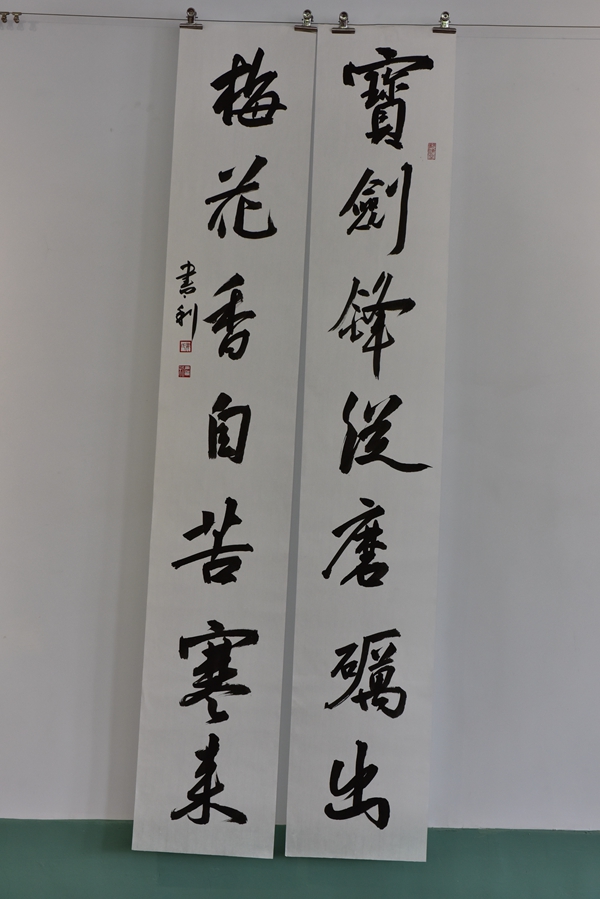 寶劍鋒從磨礪出
梅花香自苦寒來
書利